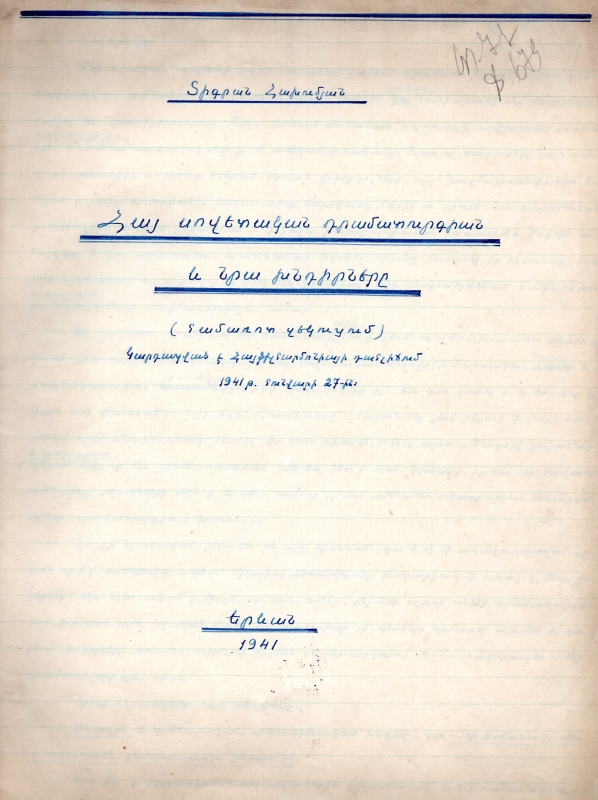 Տիգրան Հախումյան
Հայ սովետական դրամատուրգիան
և նրա խնդիրները
(համառոտ զեկուցում)
Կարդացված է Հայֆիլհարմոնիայի դահլիճում
1941 թ. հունվարի 27-ին։
Երևան
1941